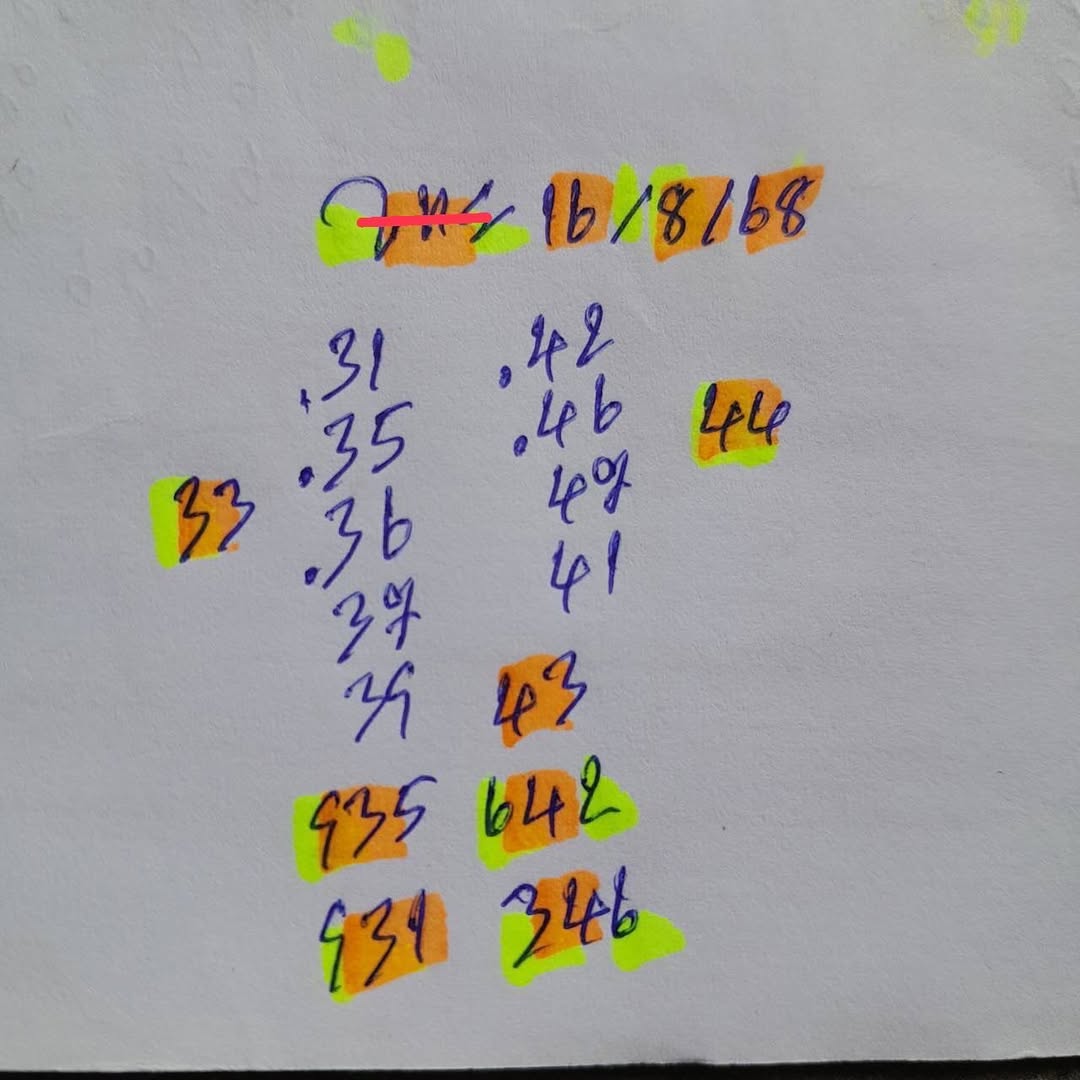 16/8/68
.31 .42
.35 .46 44
33 .36 47
37 41
39 43
935 642
931 346